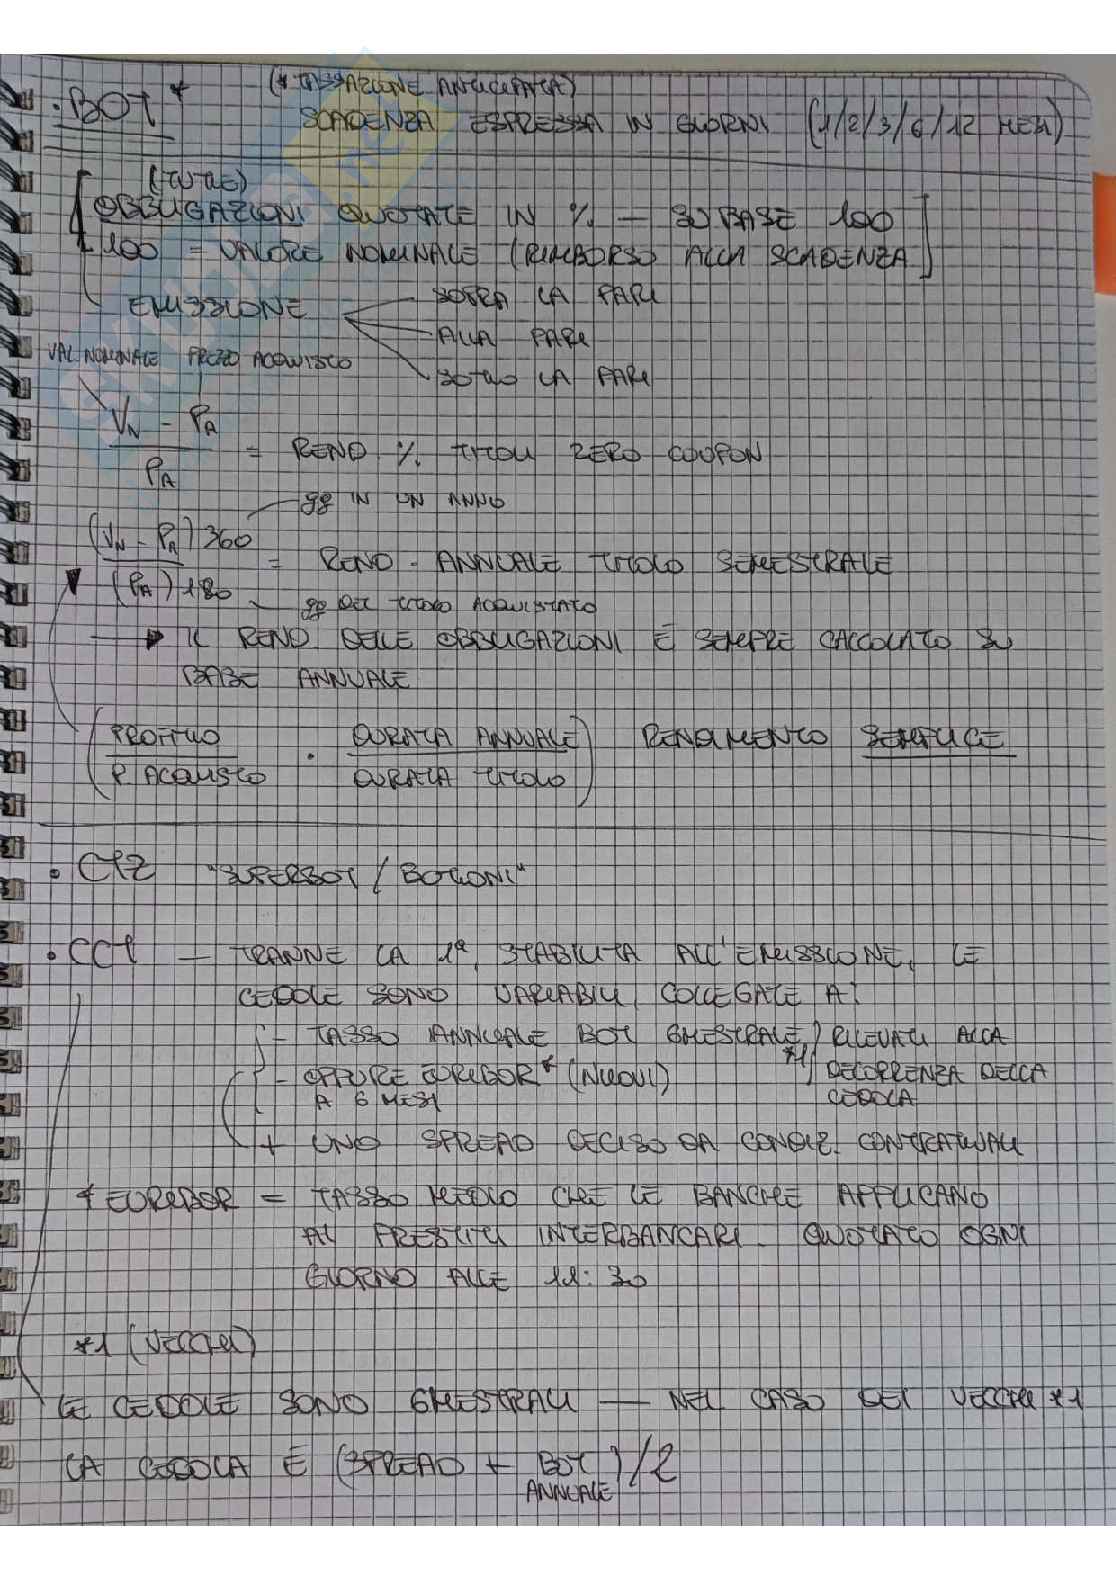 (* TASSAZIONE ANTICIPATA)
• BOT * SCADENZA ESPRESSA IN GIORNI (1/2/3/6/12 MESI)
(TUTTE)
OBBLIGAZIONI QUOTATE IN % — SU BASE 100
100 = VALORE NOMINALE (RIMBORSO ALLA SCADENZA
EMISSIONE SOPRA LA PARI
ALLA PARI
SOTTO LA PARI
VAL NOMINALE PREZZO ACQUISTO
VN - PA
PA
= REND % TITOLI ZERO COUPON
gg IN UN ANNO
(VN - PA) 360
(PA) 180
= REND. ANNUALE TITOLO SEMESTRALE
gg DEL TITOLO ACQUISTATO
→ IL REND DELLE OBBLIGAZIONI È SEMPRE CALCOLATO SU
BASE ANNUALE
(PROFITTO · DURATA ANNUALE) RENDIMENTO SEMPLICE
P. ACQUISTO DURATA TITOLO
• CTZ "SUPERBOT / BOTTONI"
• CCT — TRANNE LA 1ª, STABILITA ALL'EMISSIONE, LE
CEDOLE SONO VARIABILI, COLLEGATE A:
- TASSO ANNUALE BOT 6MESTRALE *1 RILEVATI ALLA
- OPPURE EURIBOR * (NUOVI) DECORRENZA DELLA
A 6 MESI CEDOLA
+ UNO SPREAD DECISO DA CONDIZ. CONTRATTUALI
* EURIBOR = TASSO MEDIO CHE LE BANCHE APPLICANO
AI PRESTITI INTERBANCARI. QUOTATO OGNI
GIORNO ALLE 11:30
*1 (VECCHI)
LE CEDOLE SONO 6MESTRALI — NEL CASO DEI VECCHI *1
LA CEDOLA È (SPREAD + BOT)/2
ANNUALE